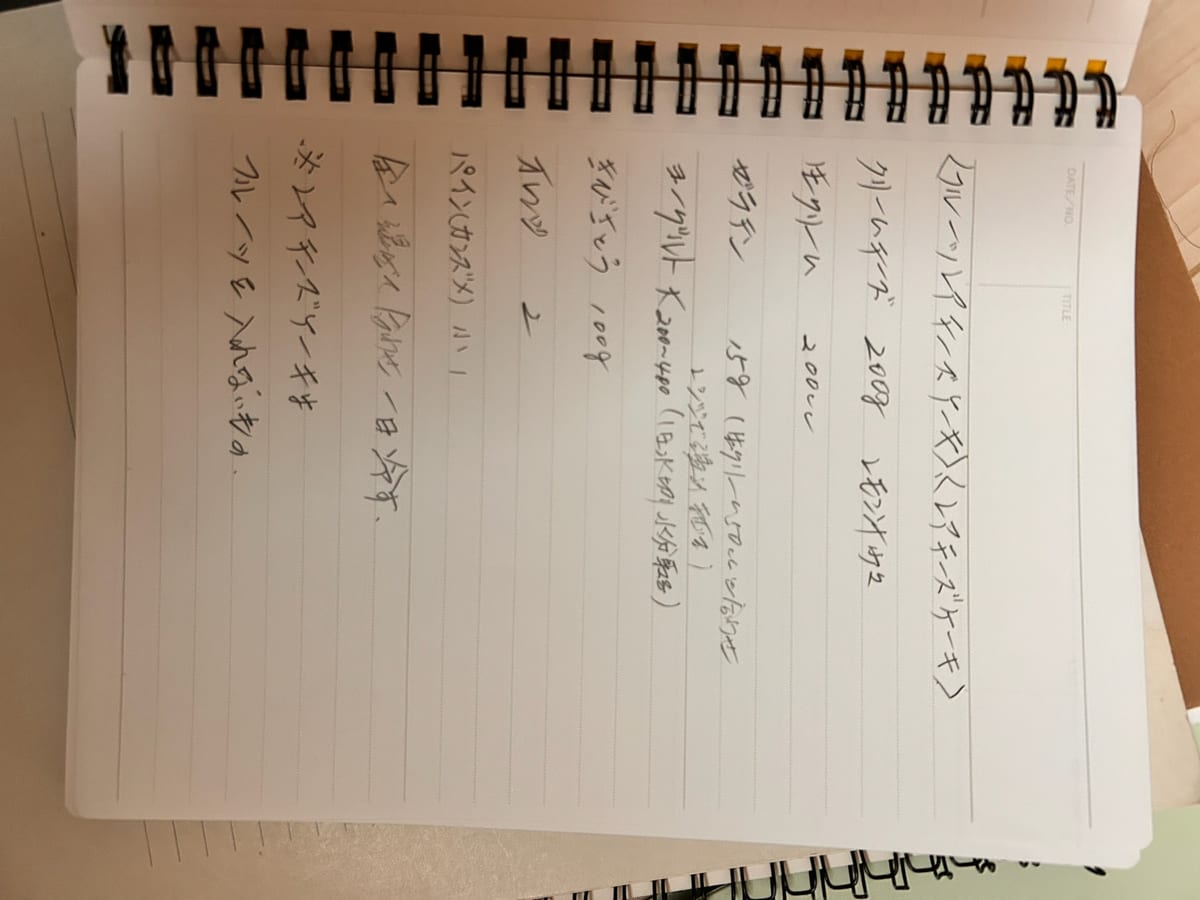 DATE/NO.
TITLE
〈フルーツレアチーズケーキ〉〈レアチーズケーキ〉
クリームチーズ 200g レモン汁 少々
生クリーム 200cc
ゼラチン 15g (生クリーム50ccと合わせ
レンジで温め 混ぜる)
ヨーグルト 200~400 (1日水切り 水分取る)
きびざとう 100g
オレンジ 2
パイン(カンズメ) 小1
全て混ぜ合わせ 一日冷す.
※レアチーズケーキは
フルーツを入れないもの.